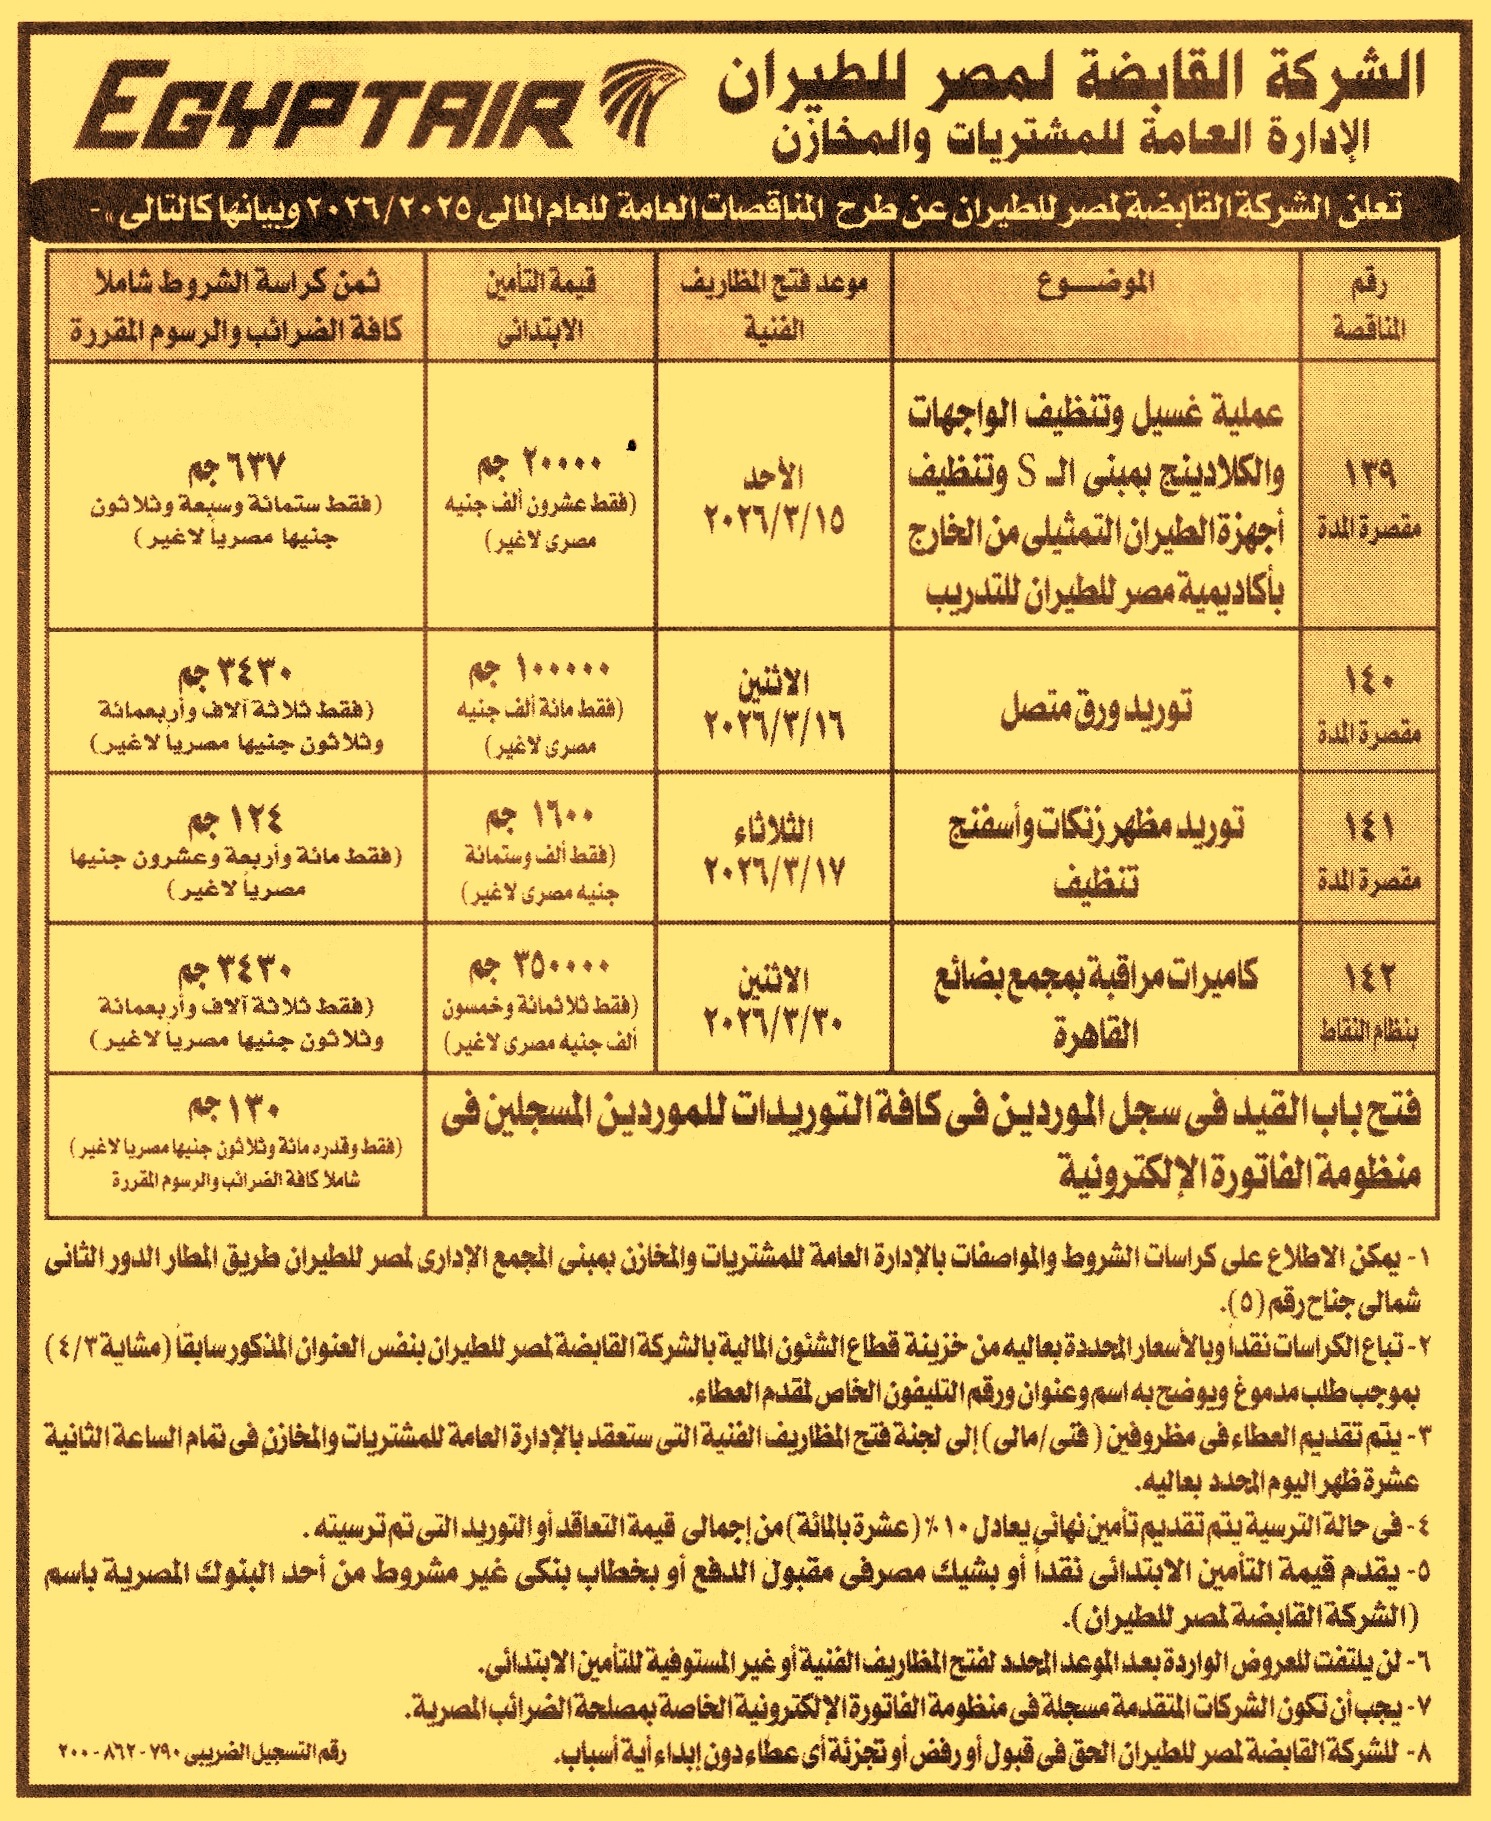 EGYPTAIR
الشركة القابضة لمصر للطيران
الإدارة العامة للمشتريات والمخازن
تعلن الشركة القابضة لمصر للطيران عن طرح المناقصات العامة للعام المالى ٢٠٢٦/٢٠٢٥ وبيانها كالتالى :-
رقم
المناقصة
الموضـــوع
موعد فتح المظاريف
الفنية
قيمة التأمين
الابتدائى
ثمن كراسة الشروط شاملا
كافة الضرائب والرسوم المقررة
١٣٩
مقصرة المدة
عملية غسيل وتنظيف الواجهات
والكلادينج بمبنى الـ S وتنظيف
أجهزة الطيران التمثيلى من الخارج
بأكاديمية مصر للطيران للتدريب
الأحد
٢٠٢٦/٣/١٥
٢٠٠٠٠ جم
(فقط عشرون ألف جنيه
مصرى لاغير)
٦٣٧ جم
(فقط ستمائة وسبعة وثلاثون
جنيها مصرياً لاغير)
١٤٠
مقصرة المدة
توريد ورق متصل
الاثنين
٢٠٢٦/٣/١٦
١٠٠٠٠٠ جم
(فقط مائة ألف جنيه
مصرى لاغير)
٣٤٣٠ جم
(فقط ثلاثة آلاف وأربعمائة
وثلاثون جنيها مصرياً لاغير)
١٤١
مقصرة المدة
توريد مظهر زنكات وأسفنج
تنظيف
الثلاثاء
٢٠٢٦/٣/١٧
١٦٠٠ جم
(فقط ألف وستمائة
جنيه مصرى لاغير)
١٢٤ جم
(فقط مائة وأربعة وعشرون جنيها
مصرياً لاغير)
١٤٢
بنظام النقاط
كاميرات مراقبة بمجمع بضائع
القاهرة
الاثنين
٢٠٢٦/٣/٣٠
٣٥٠٠٠٠ جم
(فقط ثلاثمائة وخمسون
ألف جنيه مصرى لاغير)
٣٤٣٠ جم
(فقط ثلاثة آلاف وأربعمائة
وثلاثون جنيها مصرياً لاغير)
فتح باب القيد فى سجل الموردين فى كافة التوريدات للموردين المسجلين فى
منظومة الفاتورة الإلكترونية
١٣٠ جم
(فقط وقدره مائة وثلاثون جنيها مصريا لاغير)
شاملا كافة الضرائب والرسوم المقررة
١- يمكن الاطلاع على كراسات الشروط والمواصفات بالإدارة العامة للمشتريات والمخازن بمبنى المجمع الإدارى لمصر للطيران طريق المطار الدور الثانى
شمالى جناح رقم (٥).
٢- تباع الكراسات نقداً وبالأسعار المحددة بعاليه من خزينة قطاع الشئون المالية بالشركة القابضة لمصر للطيران بنفس العنوان المذكور سابقاً (مشاية ٤/٣)
بموجب طلب مدموغ ويوضح به اسم وعنوان ورقم التليفون الخاص لمقدم العطاء.
٣- يتم تقديم العطاء فى مظروفين (فنى/مالى) إلى لجنة فتح المظاريف الفنية التى ستعقد بالإدارة العامة للمشتريات والمخازن فى تمام الساعة الثانية
عشرة ظهر اليوم المحدد بعاليه.
٤- فى حالة الترسية يتم تقديم تأمين نهائى يعادل ١٠٪ (عشرة بالمائة) من إجمالى قيمة التعاقد أو التوريد التى تم ترسيته.
٥- يقدم قيمة التأمين الابتدائى نقداً أو بشيك مصرفى مقبول الدفع أو بخطاب بنكى غير مشروط من أحد البنوك المصرية باسم
(الشركة القابضة لمصر للطيران).
٦- لن يلتفت للعروض الواردة بعد الموعد المحدد لفتح المظاريف الفنية أو غير المستوفية للتأمين الابتدائى.
٧- يجب أن تكون الشركات المتقدمة مسجلة فى منظومة الفاتورة الإلكترونية الخاصة بمصلحة الضرائب المصرية.
٨- للشركة القابضة لمصر للطيران الحق فى قبول أو رفض أو تجزئة أى عطاء دون إبداء أية أسباب.
رقم التسجيل الضريبى ٧٩٠-٨٦٢-٢٠٠